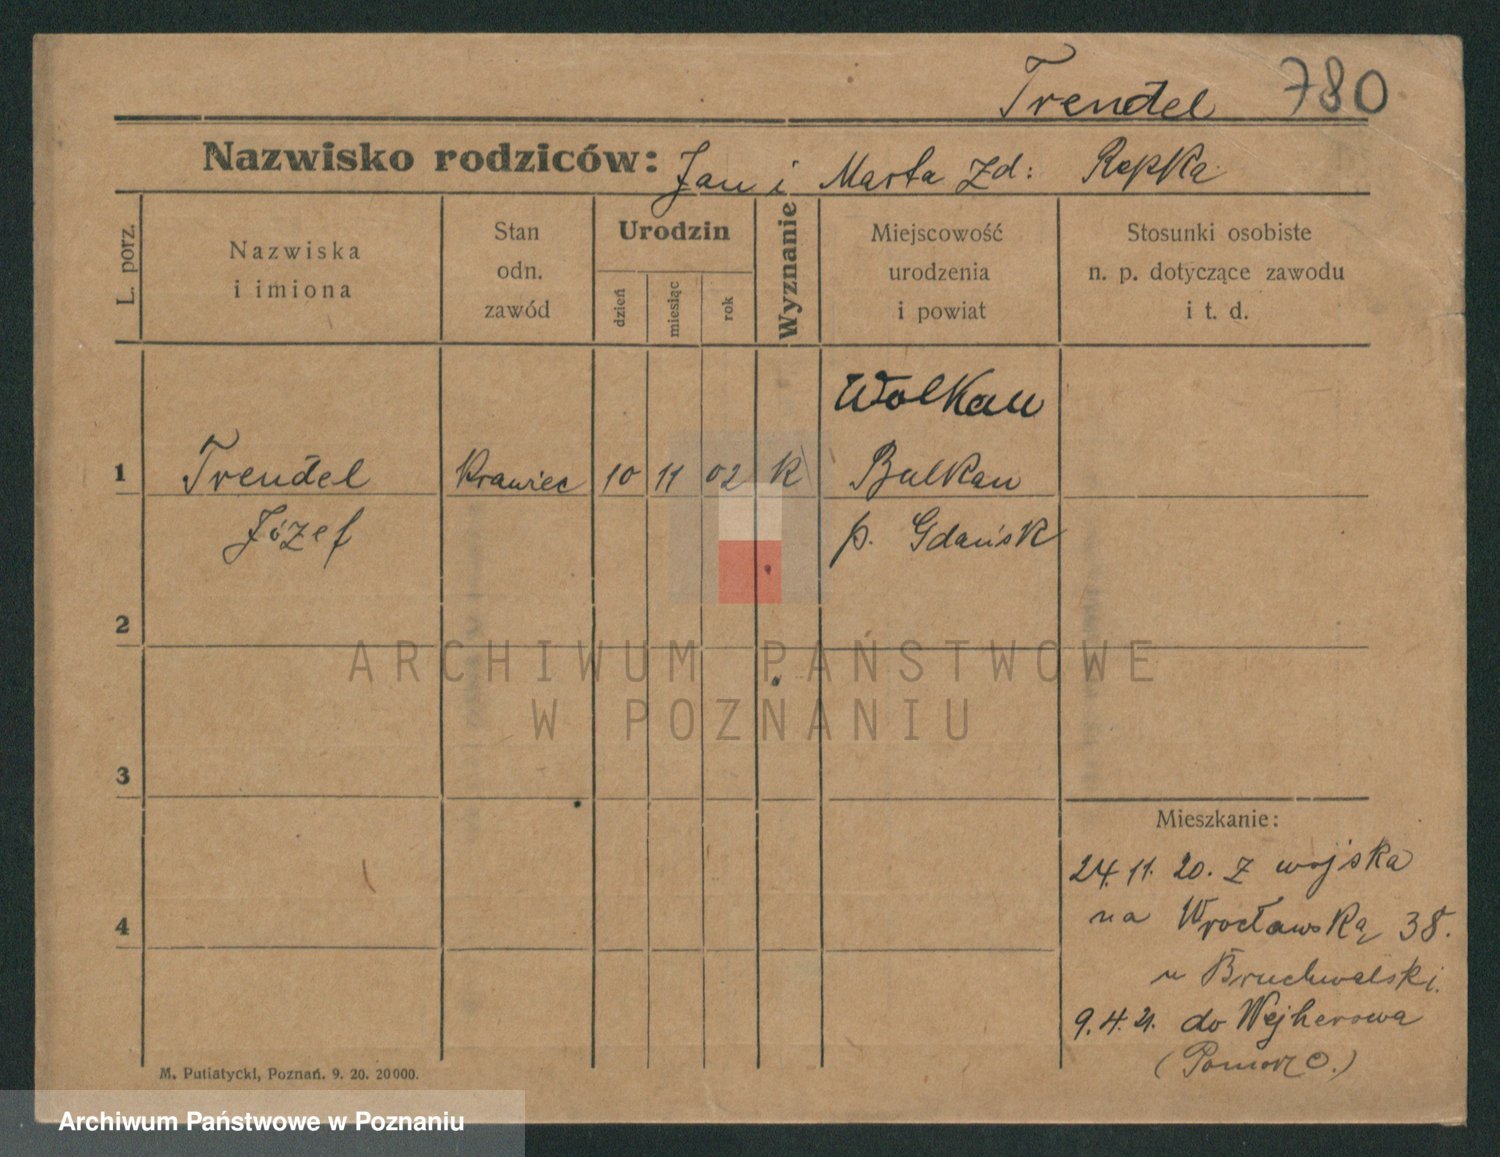 Trendel 780
Nazwisko rodziców: Jan i Marta zd: Repka
L. porz.
Nazwiska
i imiona
Stan
odn.
zawód
Urodzin
dzień
miesiąc
rok
Wyznanie
Miejscowość
urodzenia
i powiat
Stosunki osobiste
n. p. dotyczące zawodu
i t. d.
Wolkau
1 Trendel Krawiec 10 11 02 K Bulkau
Józef p. Gdańsk
2
3
4
Mieszkanie:
24. 11. 20. z wojska
na Wrocławską 38.
u Bruchwalski.
9. 4. 21. do Wejherowa
(Pomorze.)
M. Putiatycki, Poznań. 9. 20. 20000.
ARCHIWUM PAŃSTWOWE
W POZNANIU
Archiwum Państwowe w Poznaniu